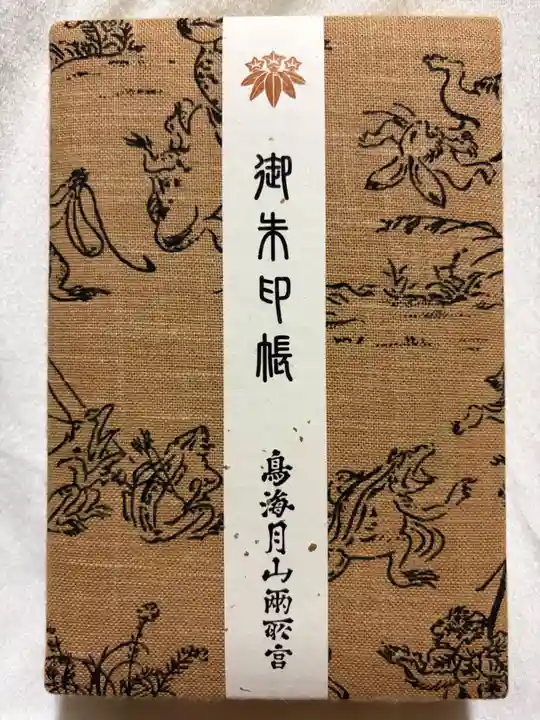 御朱印帳
鳥海月山兩所宮